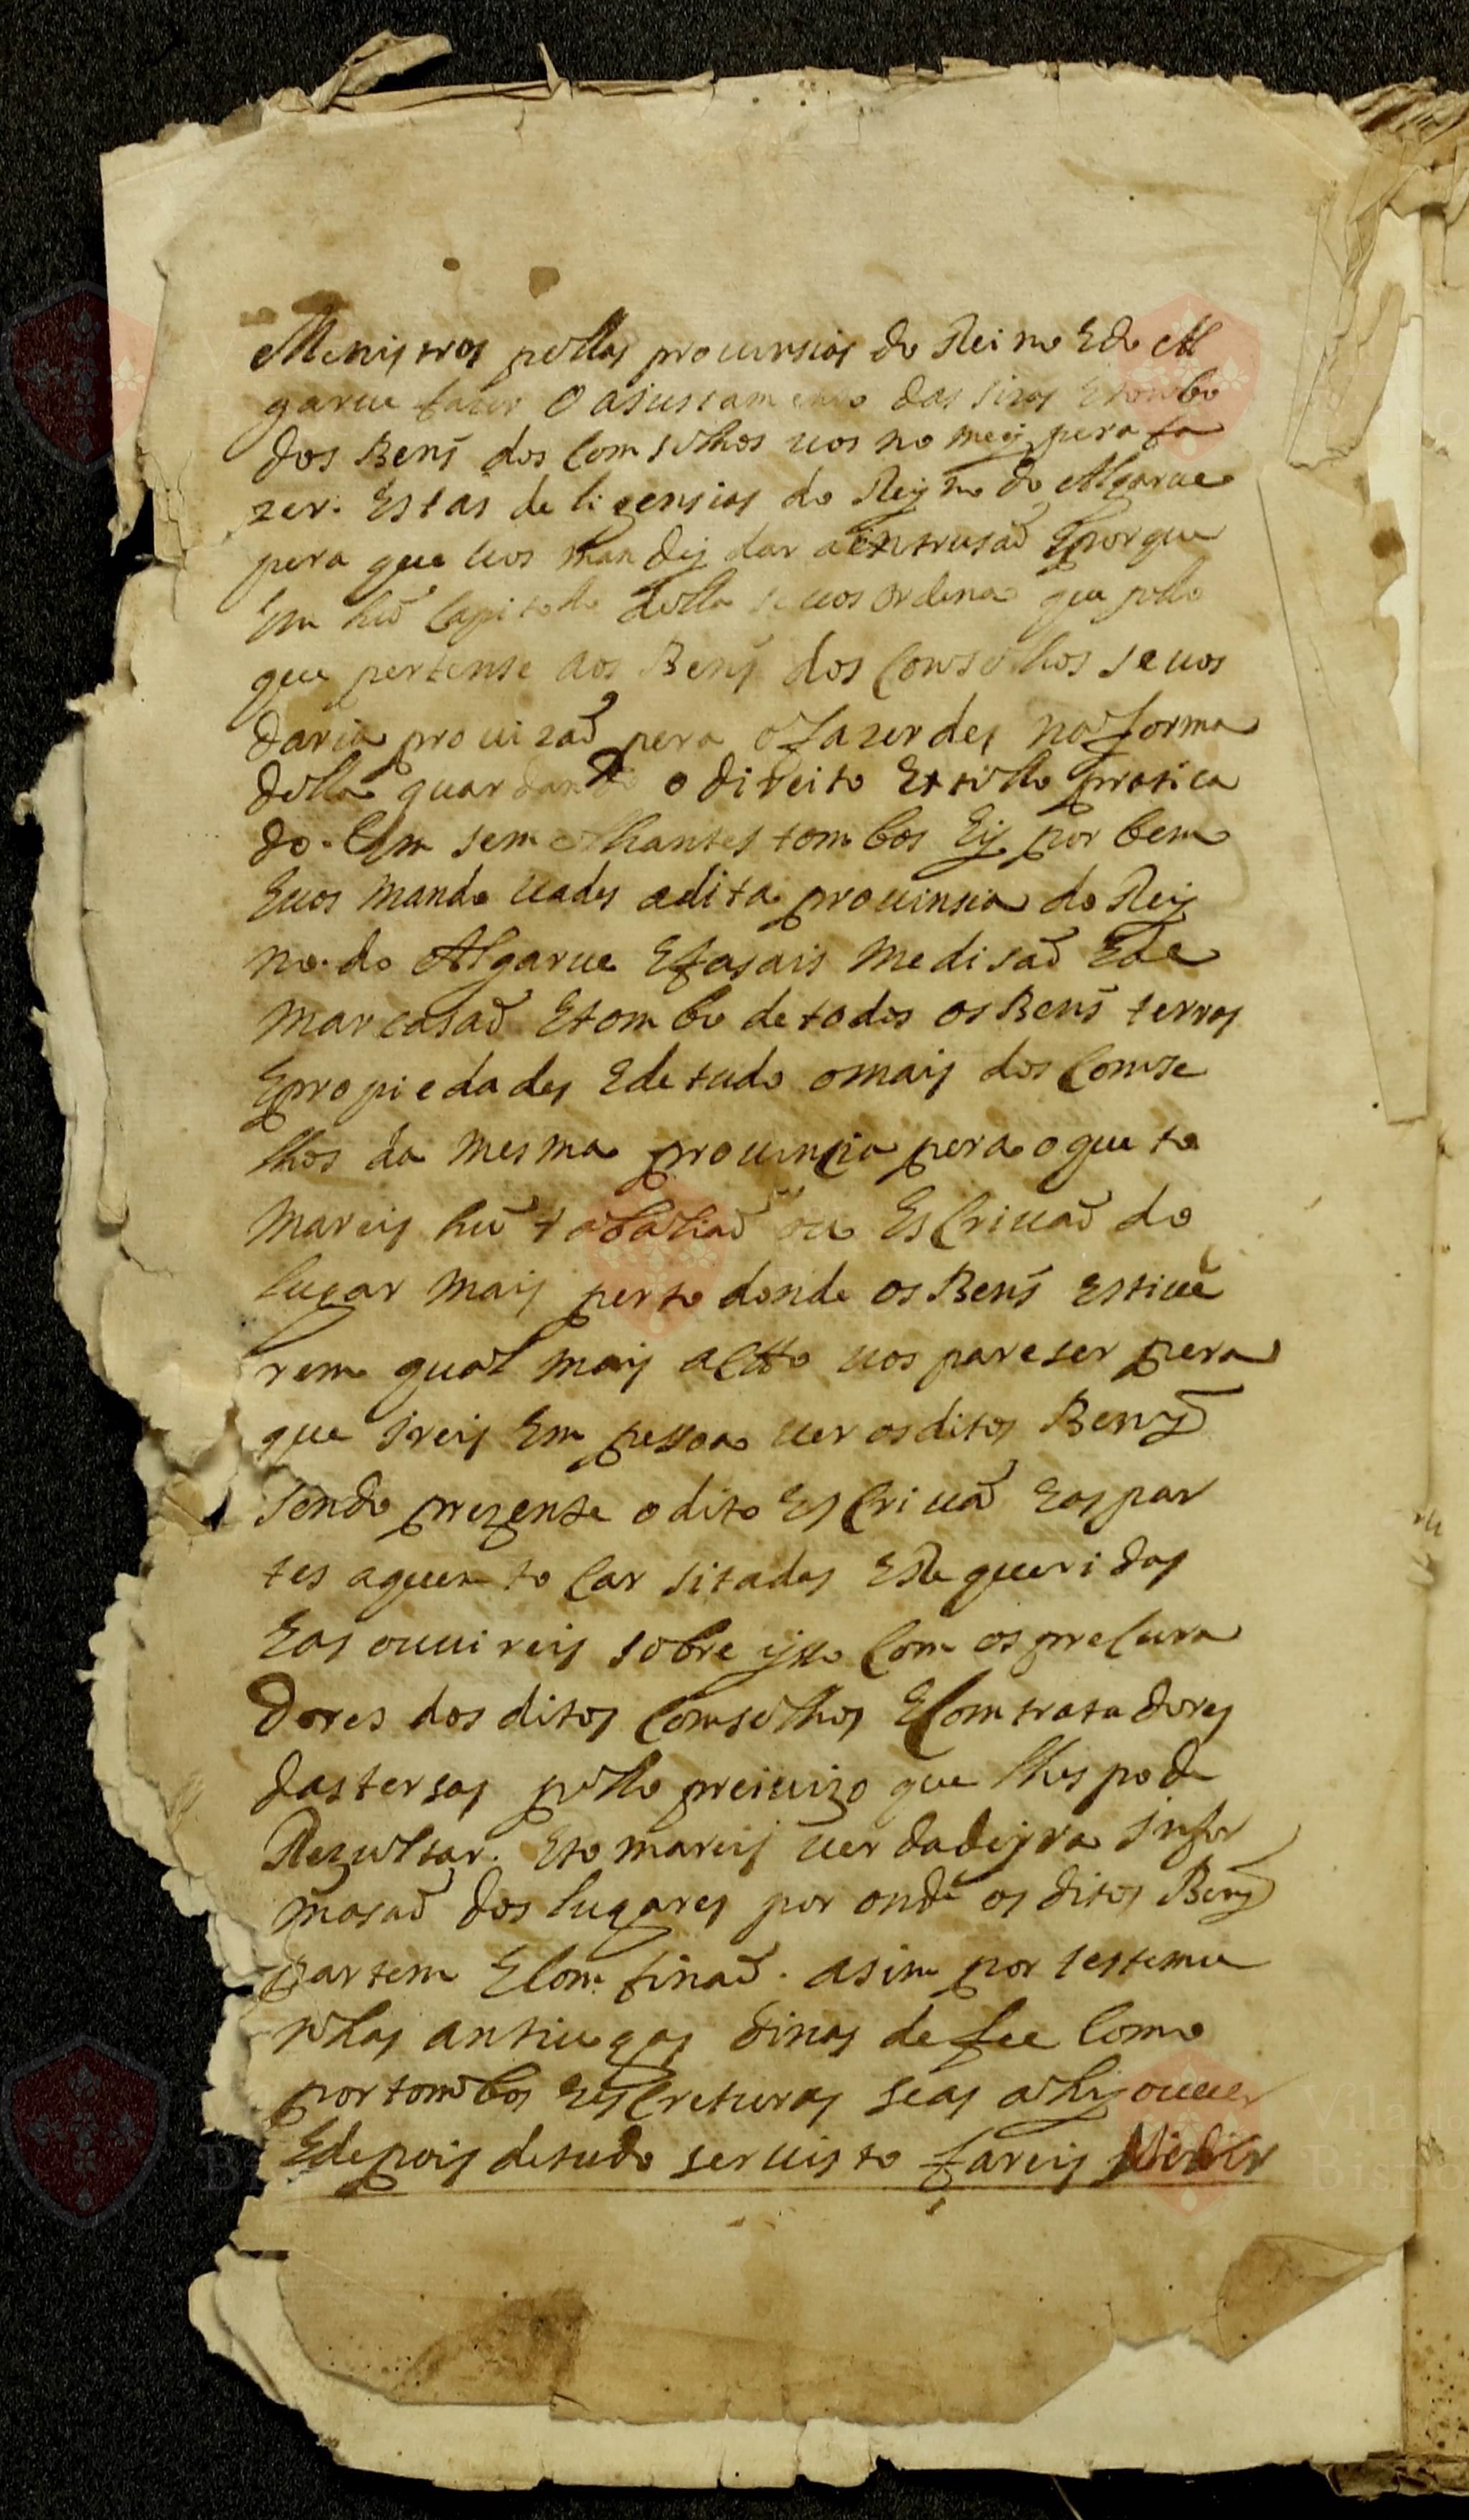 Menistros pellas provinsias do Reino E do Al
garue fazer o ajustamento das sizas E tombo
dos Bens dos Comselhos uos nomeej pera fa
zer. Estas deligensias do Reyno do Algarue
pera que uos mandej dar a entrusaõ E porque
Em hũ Capitollo della se uos ordena que pello
que pertense aos Bens dos Conselhos se uos
daria prouizaõ pera o fazerdes na forma
della guardando o direito Extillo pratica
do. Em semelhantes tombos Eij por bem
E uos mando uades a dita prouinsia do Rej
no. do Algarue E fasais medisaõ E de
marcasaõ E tombo de todos os Bens terras
E propiedades E de tudo o mais dos Comse
lhos da mesma prouincia pera o que to
mareis hũ tabaliaõ ou Escriuaõ do
lugar mais perto donde os Bens estiue
rem qual mais apto uos pareser pera
que ireis Em pessoa uer os ditos Bens
sendo prezente o dito Escriuã E as par
tes a quem tocar sitadas E Requeridas
E as ouuireis sobre ysso Com os precura
dores dos ditos Comselhos E Comtratadores
das tersas pello preiuizo que lhes pode
Rezultar. E tomareis uerdadeyra Infor
masaõ dos lugares por onde os ditos Bens
partem E Comfinaõ. asim por testemu
nhas antiugas dinas de fee Como
por tombos E escreturas se as ahy ouuer
E depois de tudo ser uisto fareis Midir